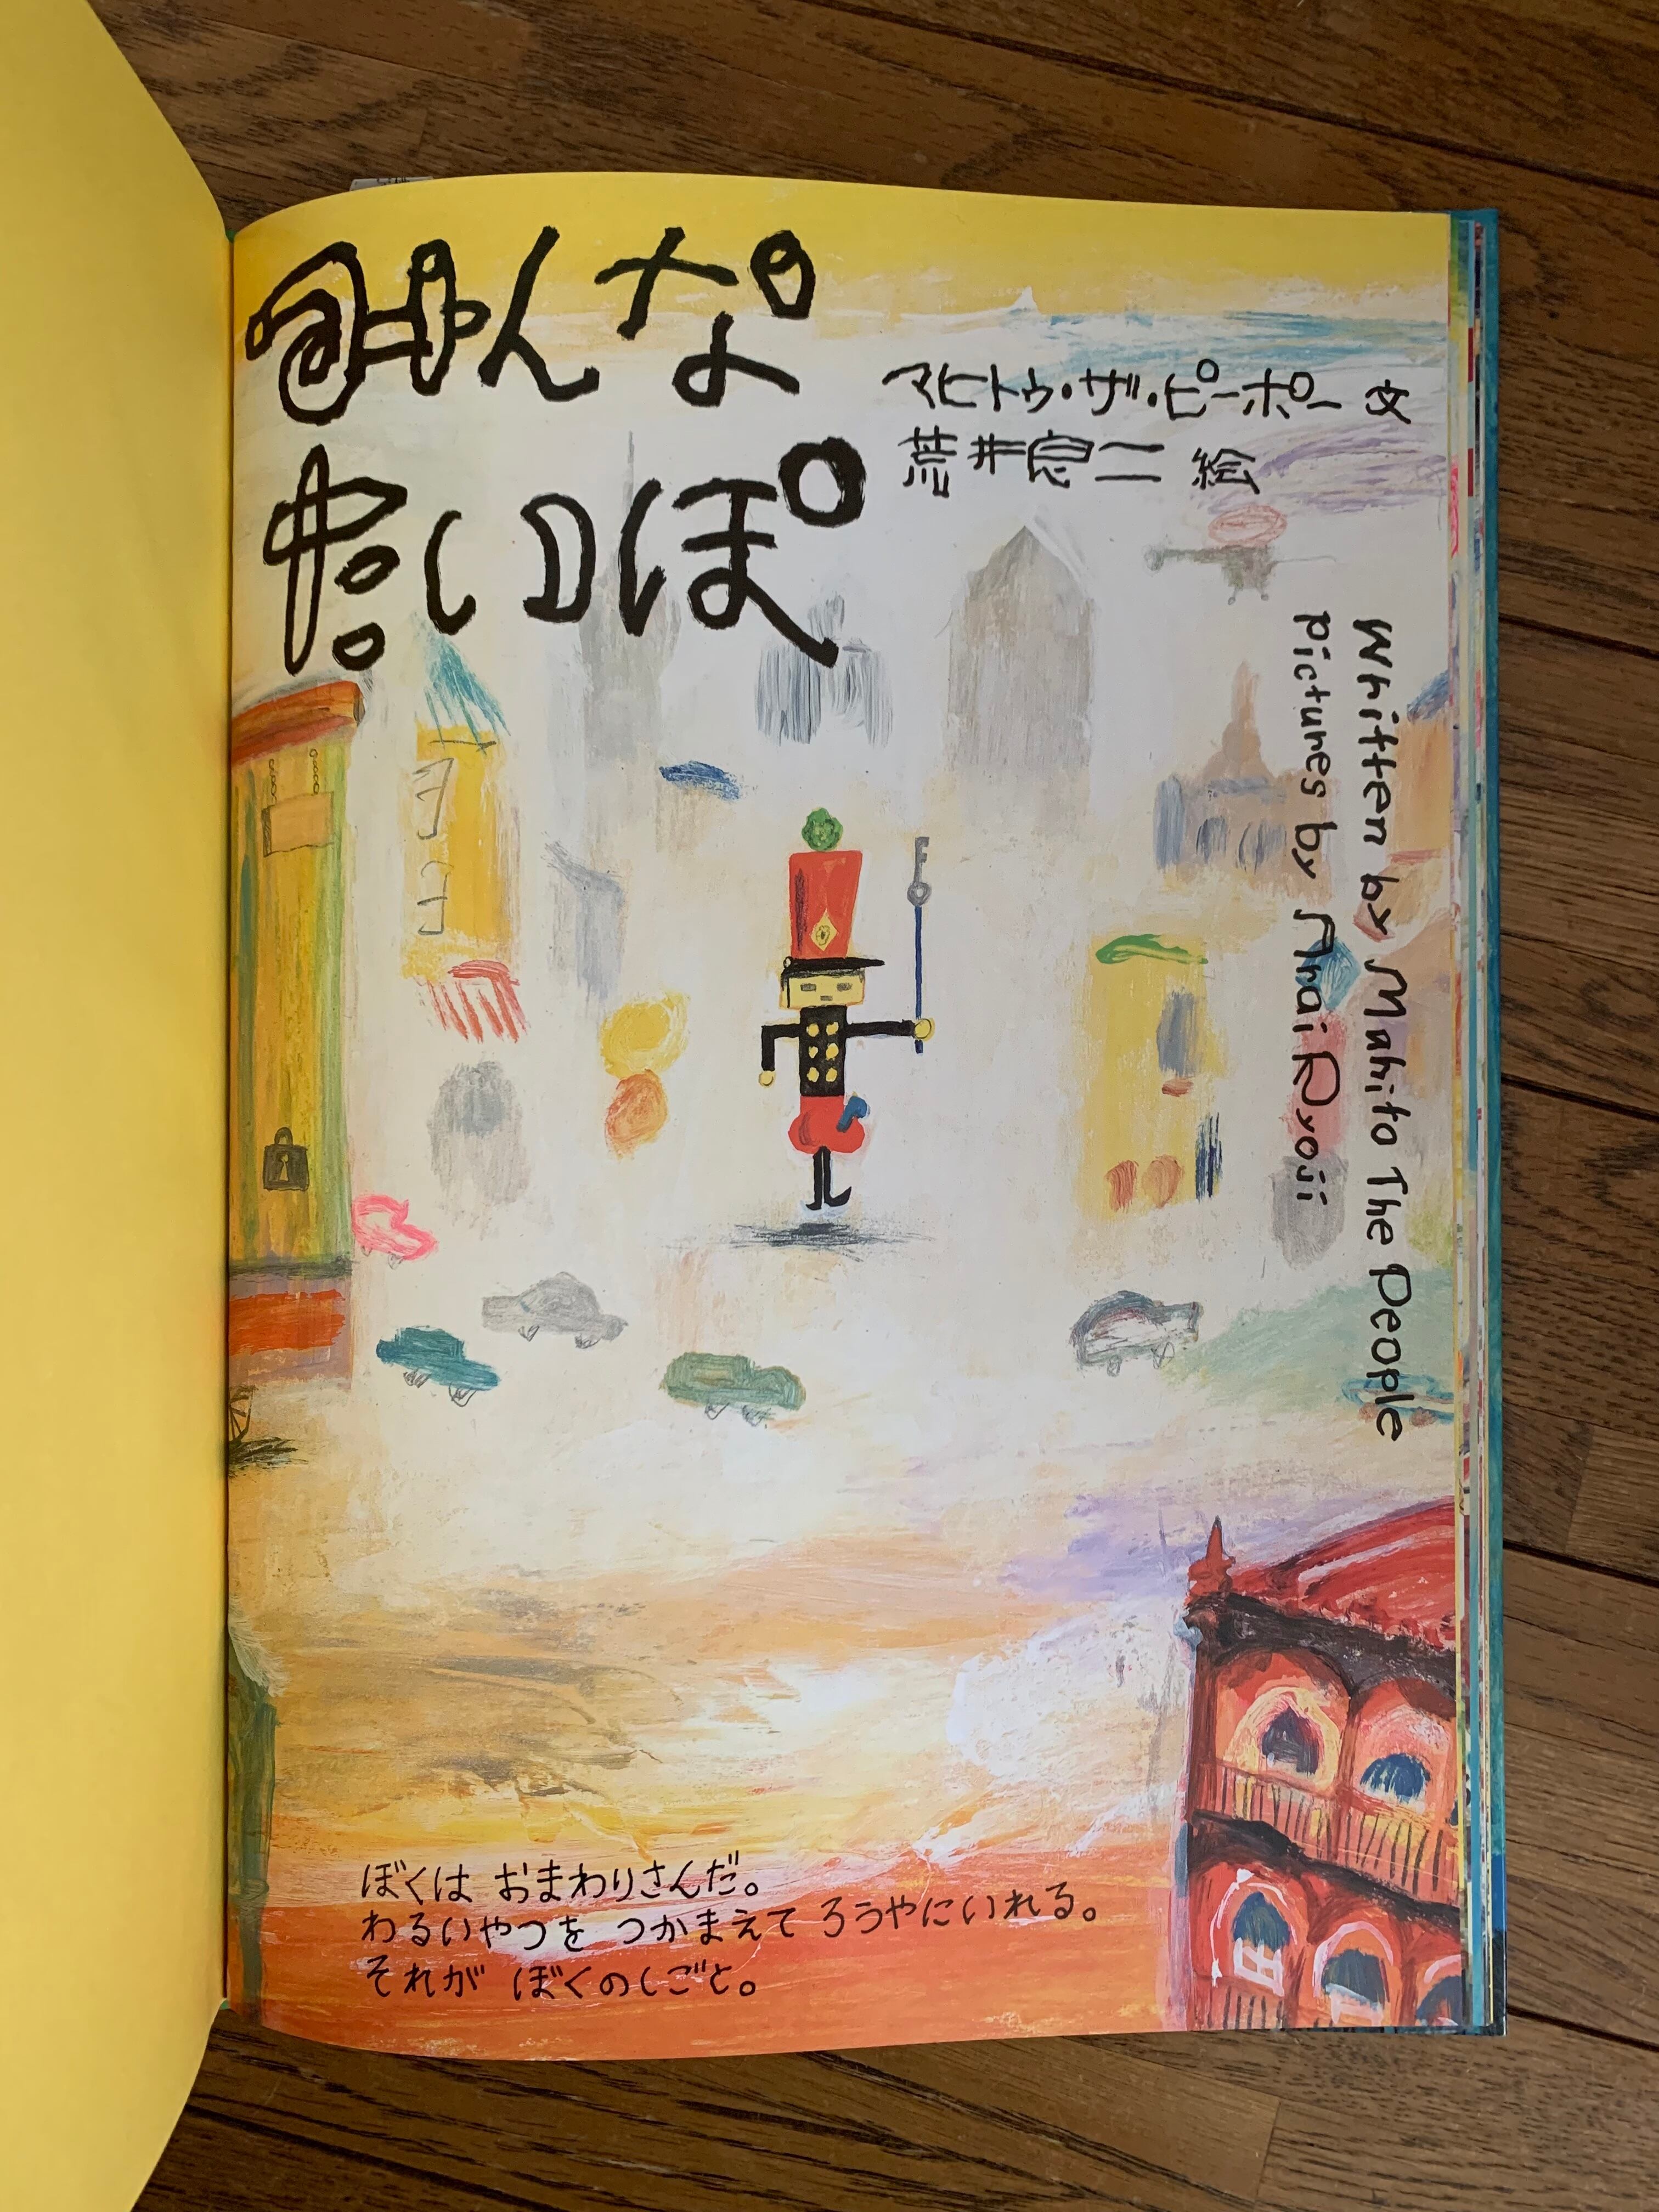 みんな
たいほ
マヒトゥ・ザ・ピーポー 文
荒井良二 絵
Written by Mahito The People
pictures by Arai Ryoji
ぼくは おまわりさんだ。
わるいやつを つかまえて ろうやにいれる。
それが ぼくのしごと。